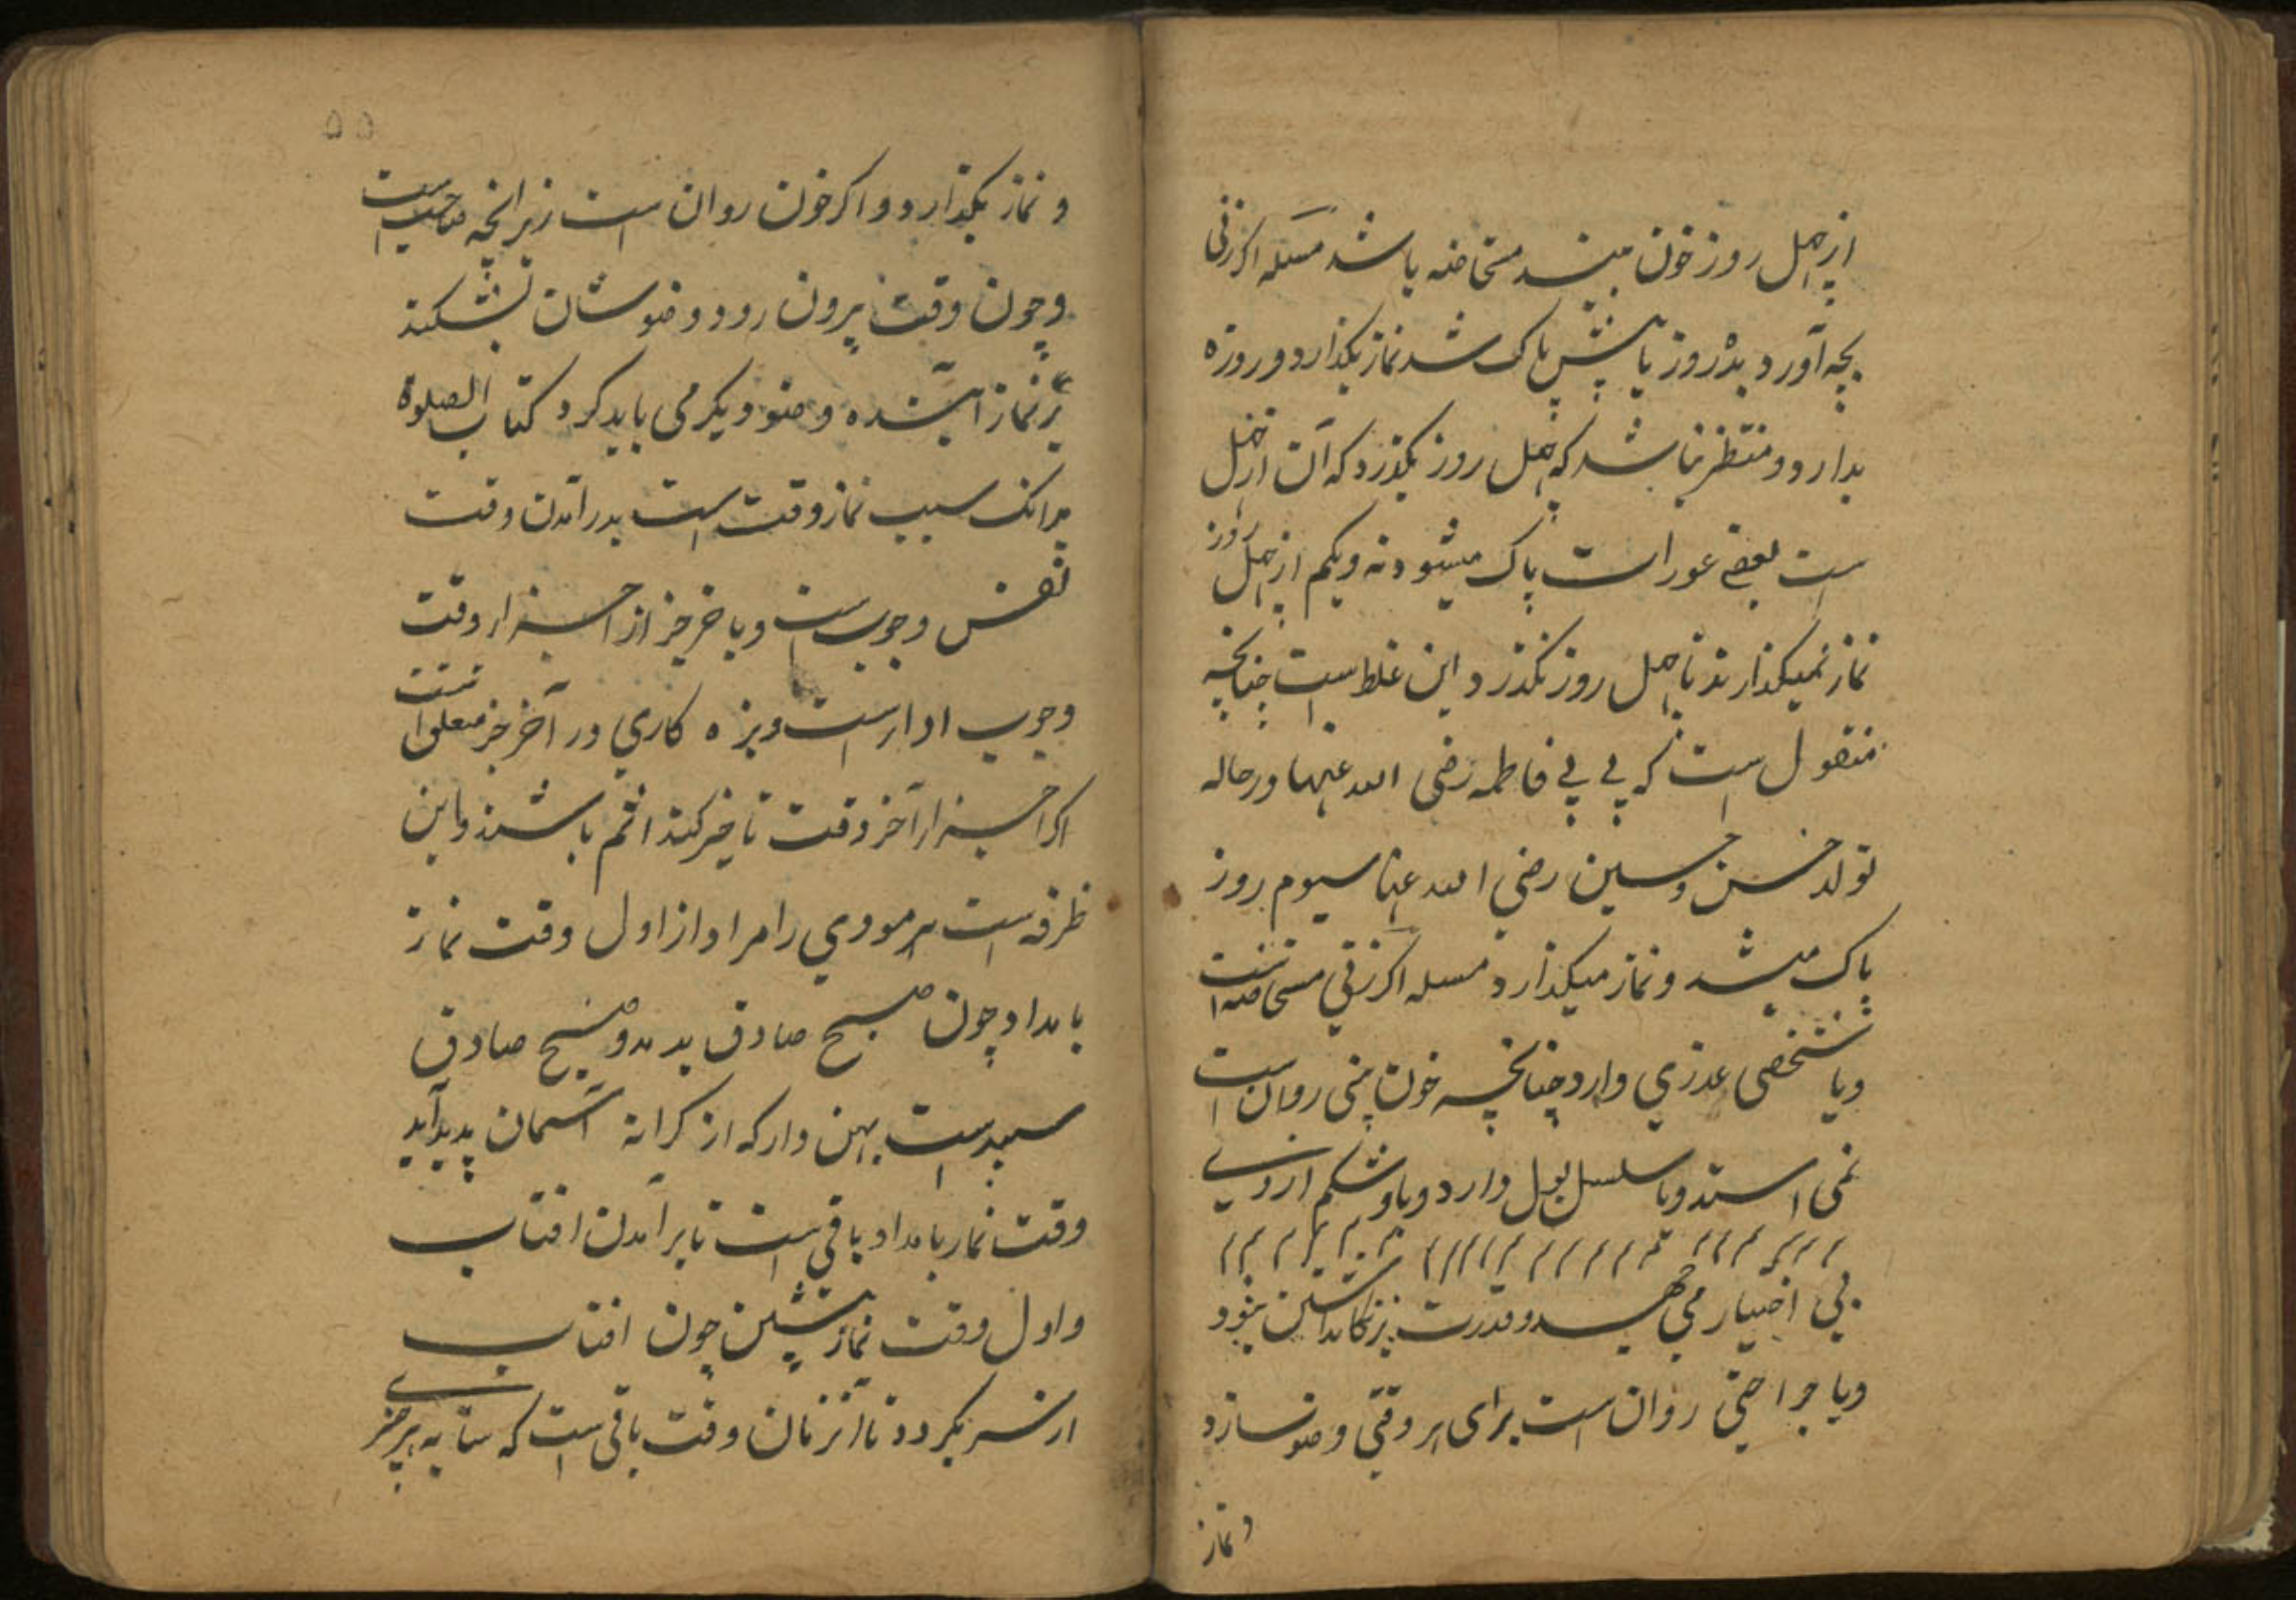 از چهل روز خون بیند مستحاضه باشد مسئله اکر زنی
بچه آورد بدٰه روز یا بیش پاک شد نماز بکذارد و روزه
بدارد و منتظر نباشد که چهل روز بکذرد که آن از چهل
است بعضے عورات پاک میشوند و یکم از چهل روز
نماز نمیکذارند تا چهل روز نکذرد این غلط است چنانچه
منقول است که بی بی فاطمه رضی الله عنها در حاله
تولد حسن و حسین رضی الله عنهما سیوم روز
پاک میشد و نماز میکذارد مسله اکر زنی مستحاضه است
و یا شخصی عذری دارد چنانچه خون بینی روان است
نمی استد و یا سلسل بول دارد و یا شکم از وے
بی اختیار می جهد و قدرت بر نکاهداشتن نبود
و یا جراحتی روان است برای هر وقتی وضو سازد
و نماز
۵۵
و نماز بکذارد و اکر خون روان است زیرانچه صاحب است
و چون وقت بیرون رود وضو شان بشکند
بر نماز آینده وضو دیکر می باید کرد کتاب الصلوة
بدانک سبب نماز وقت است بدر آمدن وقت
نفس وجوبست و باخر جز از اجزاء وقت
وجوب ادا است و بزه کاری در آخر جز معلق است
اکر از آخر وقت تاخیر کند اثم باشند و این
ظرفه است هر مودی را مر او از اول وقت نماز
بامداد چون صبح صادق بدمد و صبح صادق
سپیدست پهن وار که از کرانه آسمان پدید آید
وقت نماز بامداد باقی است تا برآمدن افتاب
و اول وقت نماز پیشین چون افتاب
از سر بکردد تا آنزمان وقت باقی است که سایه هر چیزے